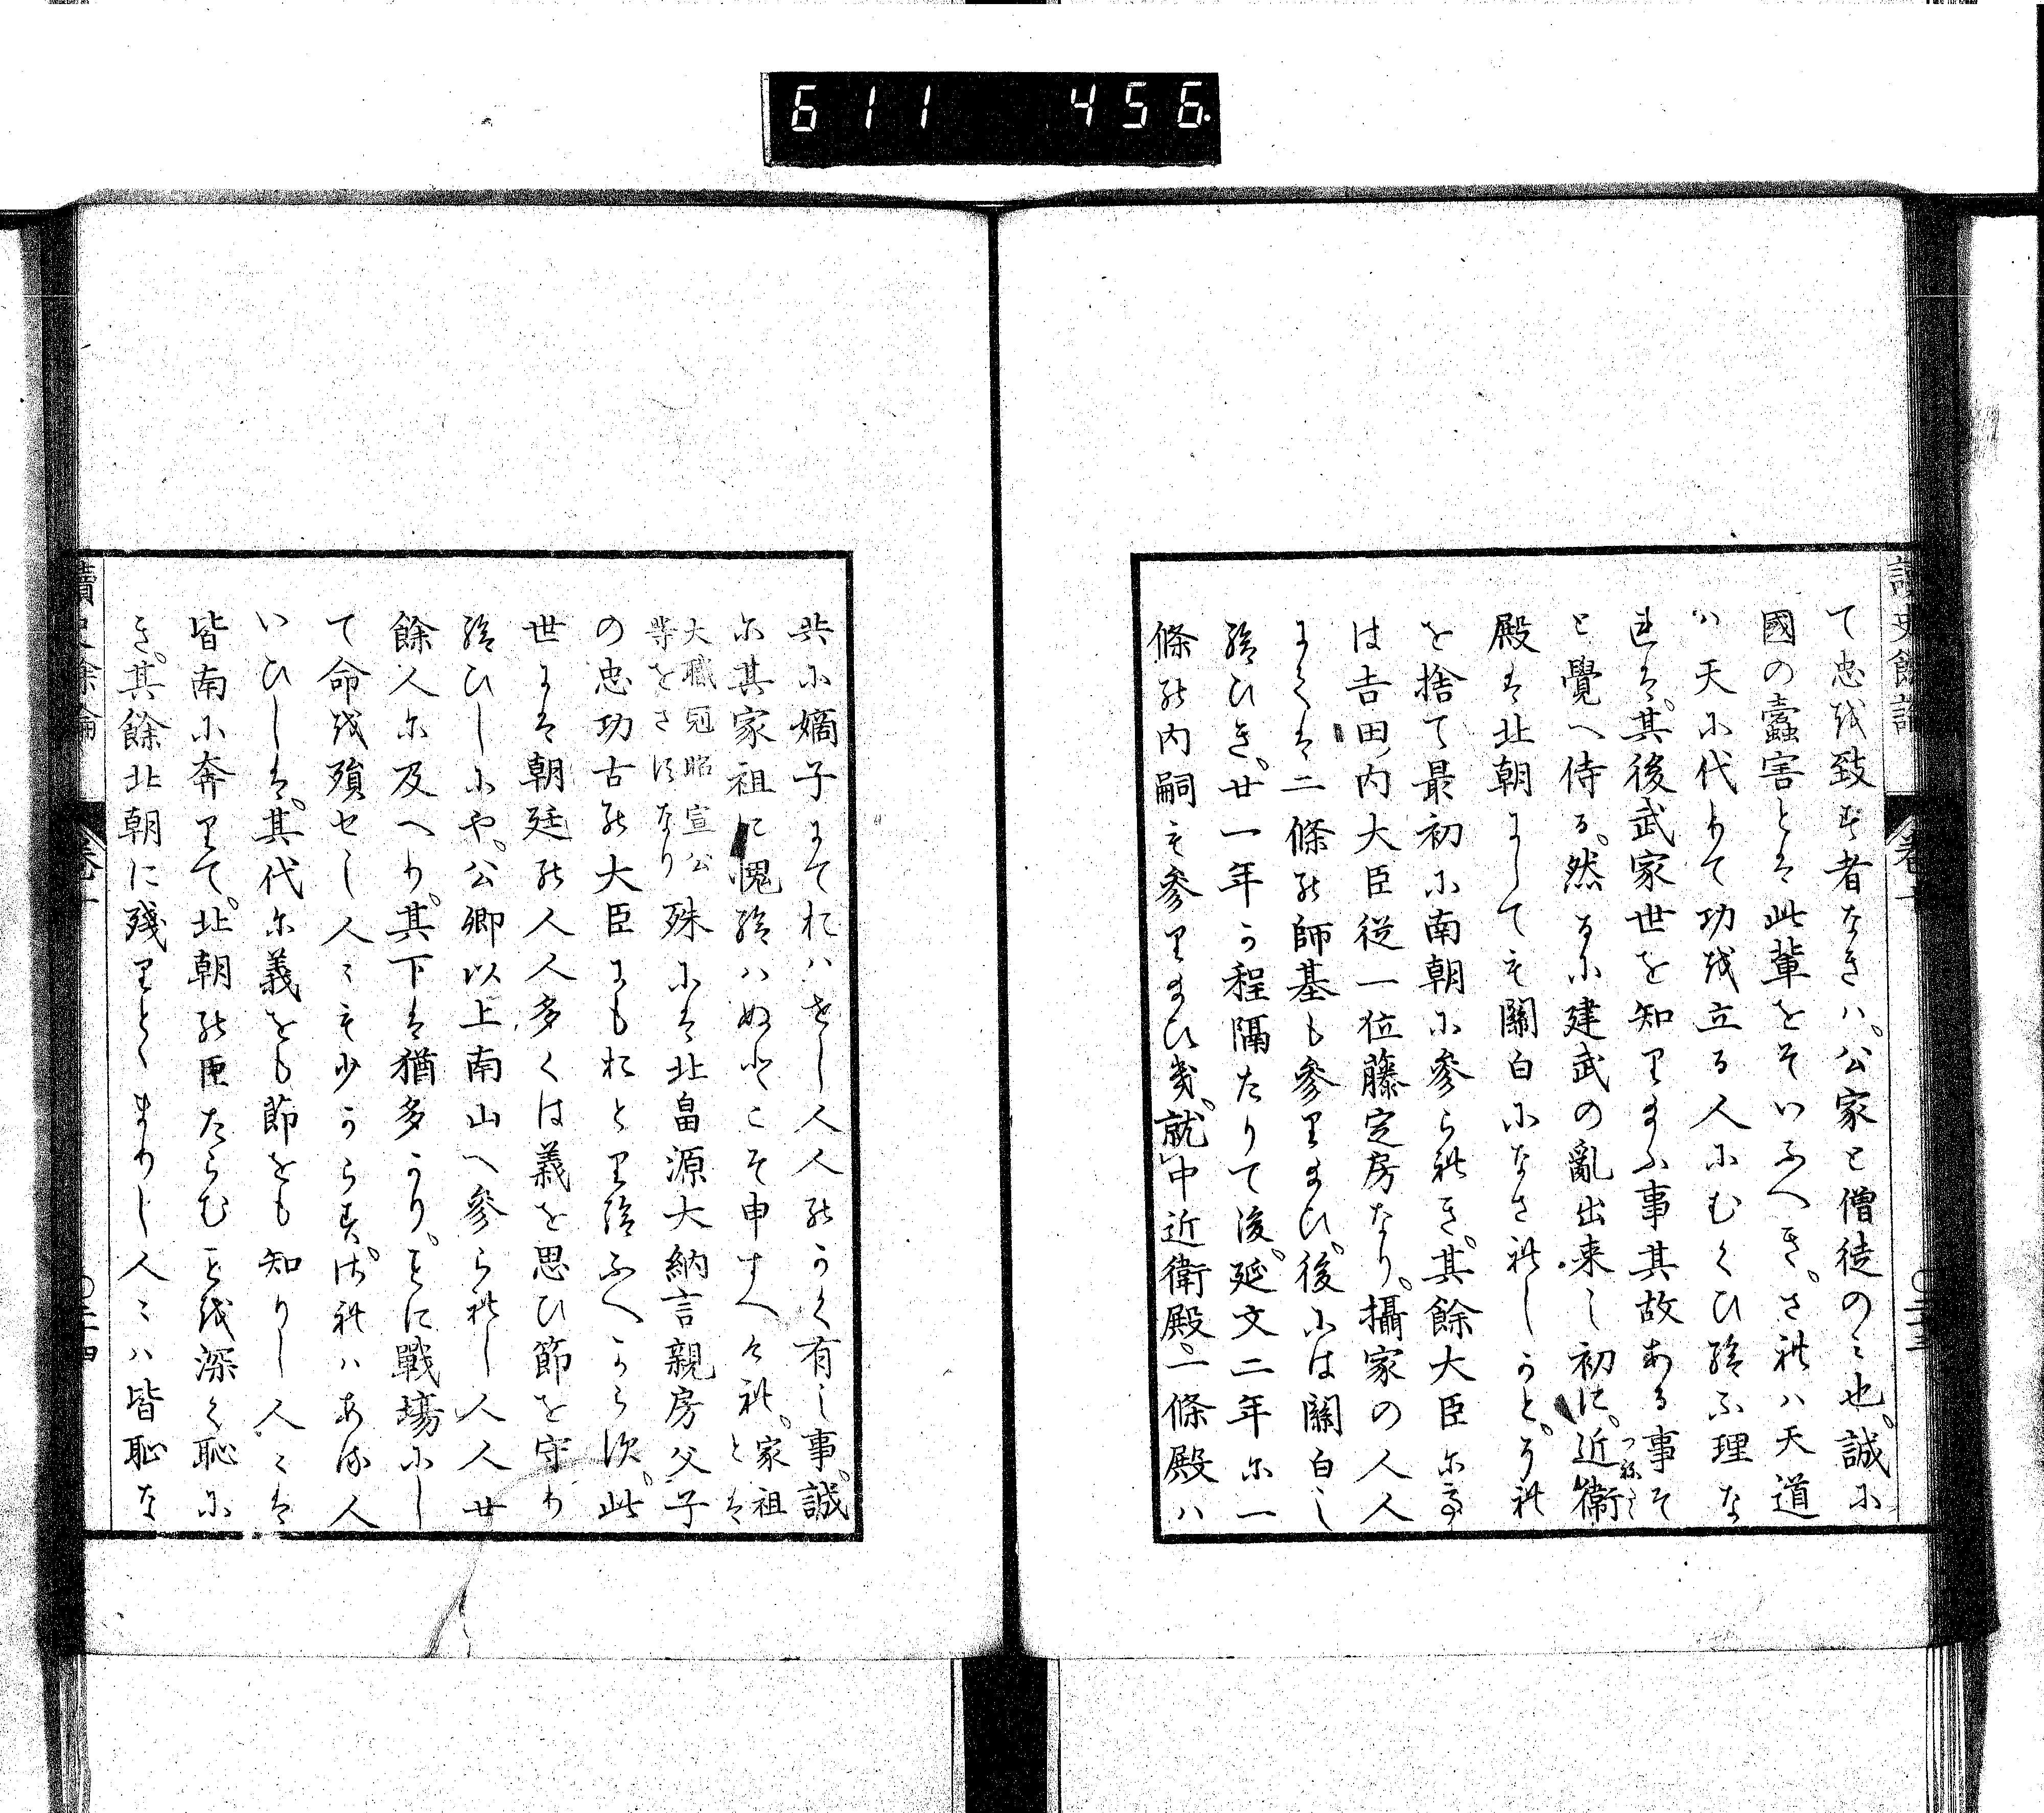 611 456.
讀史餘論 卷十
て忠を致す者なきハ公家と僧徒のミ也誠に
國の蠹害とは此輩をそいふへきされハ天道
ハ天に代りて功を立る人にむくひ給ふ理な
れは其後武家世を知り給ふ事其故ある事そ
と覺へ侍る然るに建武の亂出来し初に近衛つねたゝ
殿は北朝にしても關白になされしかとかれ
を捨て最初に南朝に參られき其餘大臣にて
は吉田内大臣従一位藤定房なり攝家の人人
にては二條の師基も參り給ひ後には關白し
給ひき廿一年か程隔たりて後延文二年に一
條の内嗣も參り給ひき就中近衛殿一條殿ハ
共に嫡子にておハせし人人のかく有し事誠
に其家祖に愧給ハぬとこそ申すへけれ家祖とは
大職冠昭宣公等をさすなり殊には北畠源大納言親房父子
の忠功古の大臣にもおとり給ふへからす此
世には朝廷の人人多くは義を思ひ節を守り
給ひしにや公卿以上南山へ參られし人人廿
餘人に及へり其下は猶多かりことに戰場にし
て命を殞せし人々も少からすされハある人
いひしは其代に義をも節をも知りし人々は
皆南に奔りて北朝の臣たらむことを深く恥に
き其餘北朝に殘りとゝまりし人々ハ皆恥な
讀史餘論 卷十